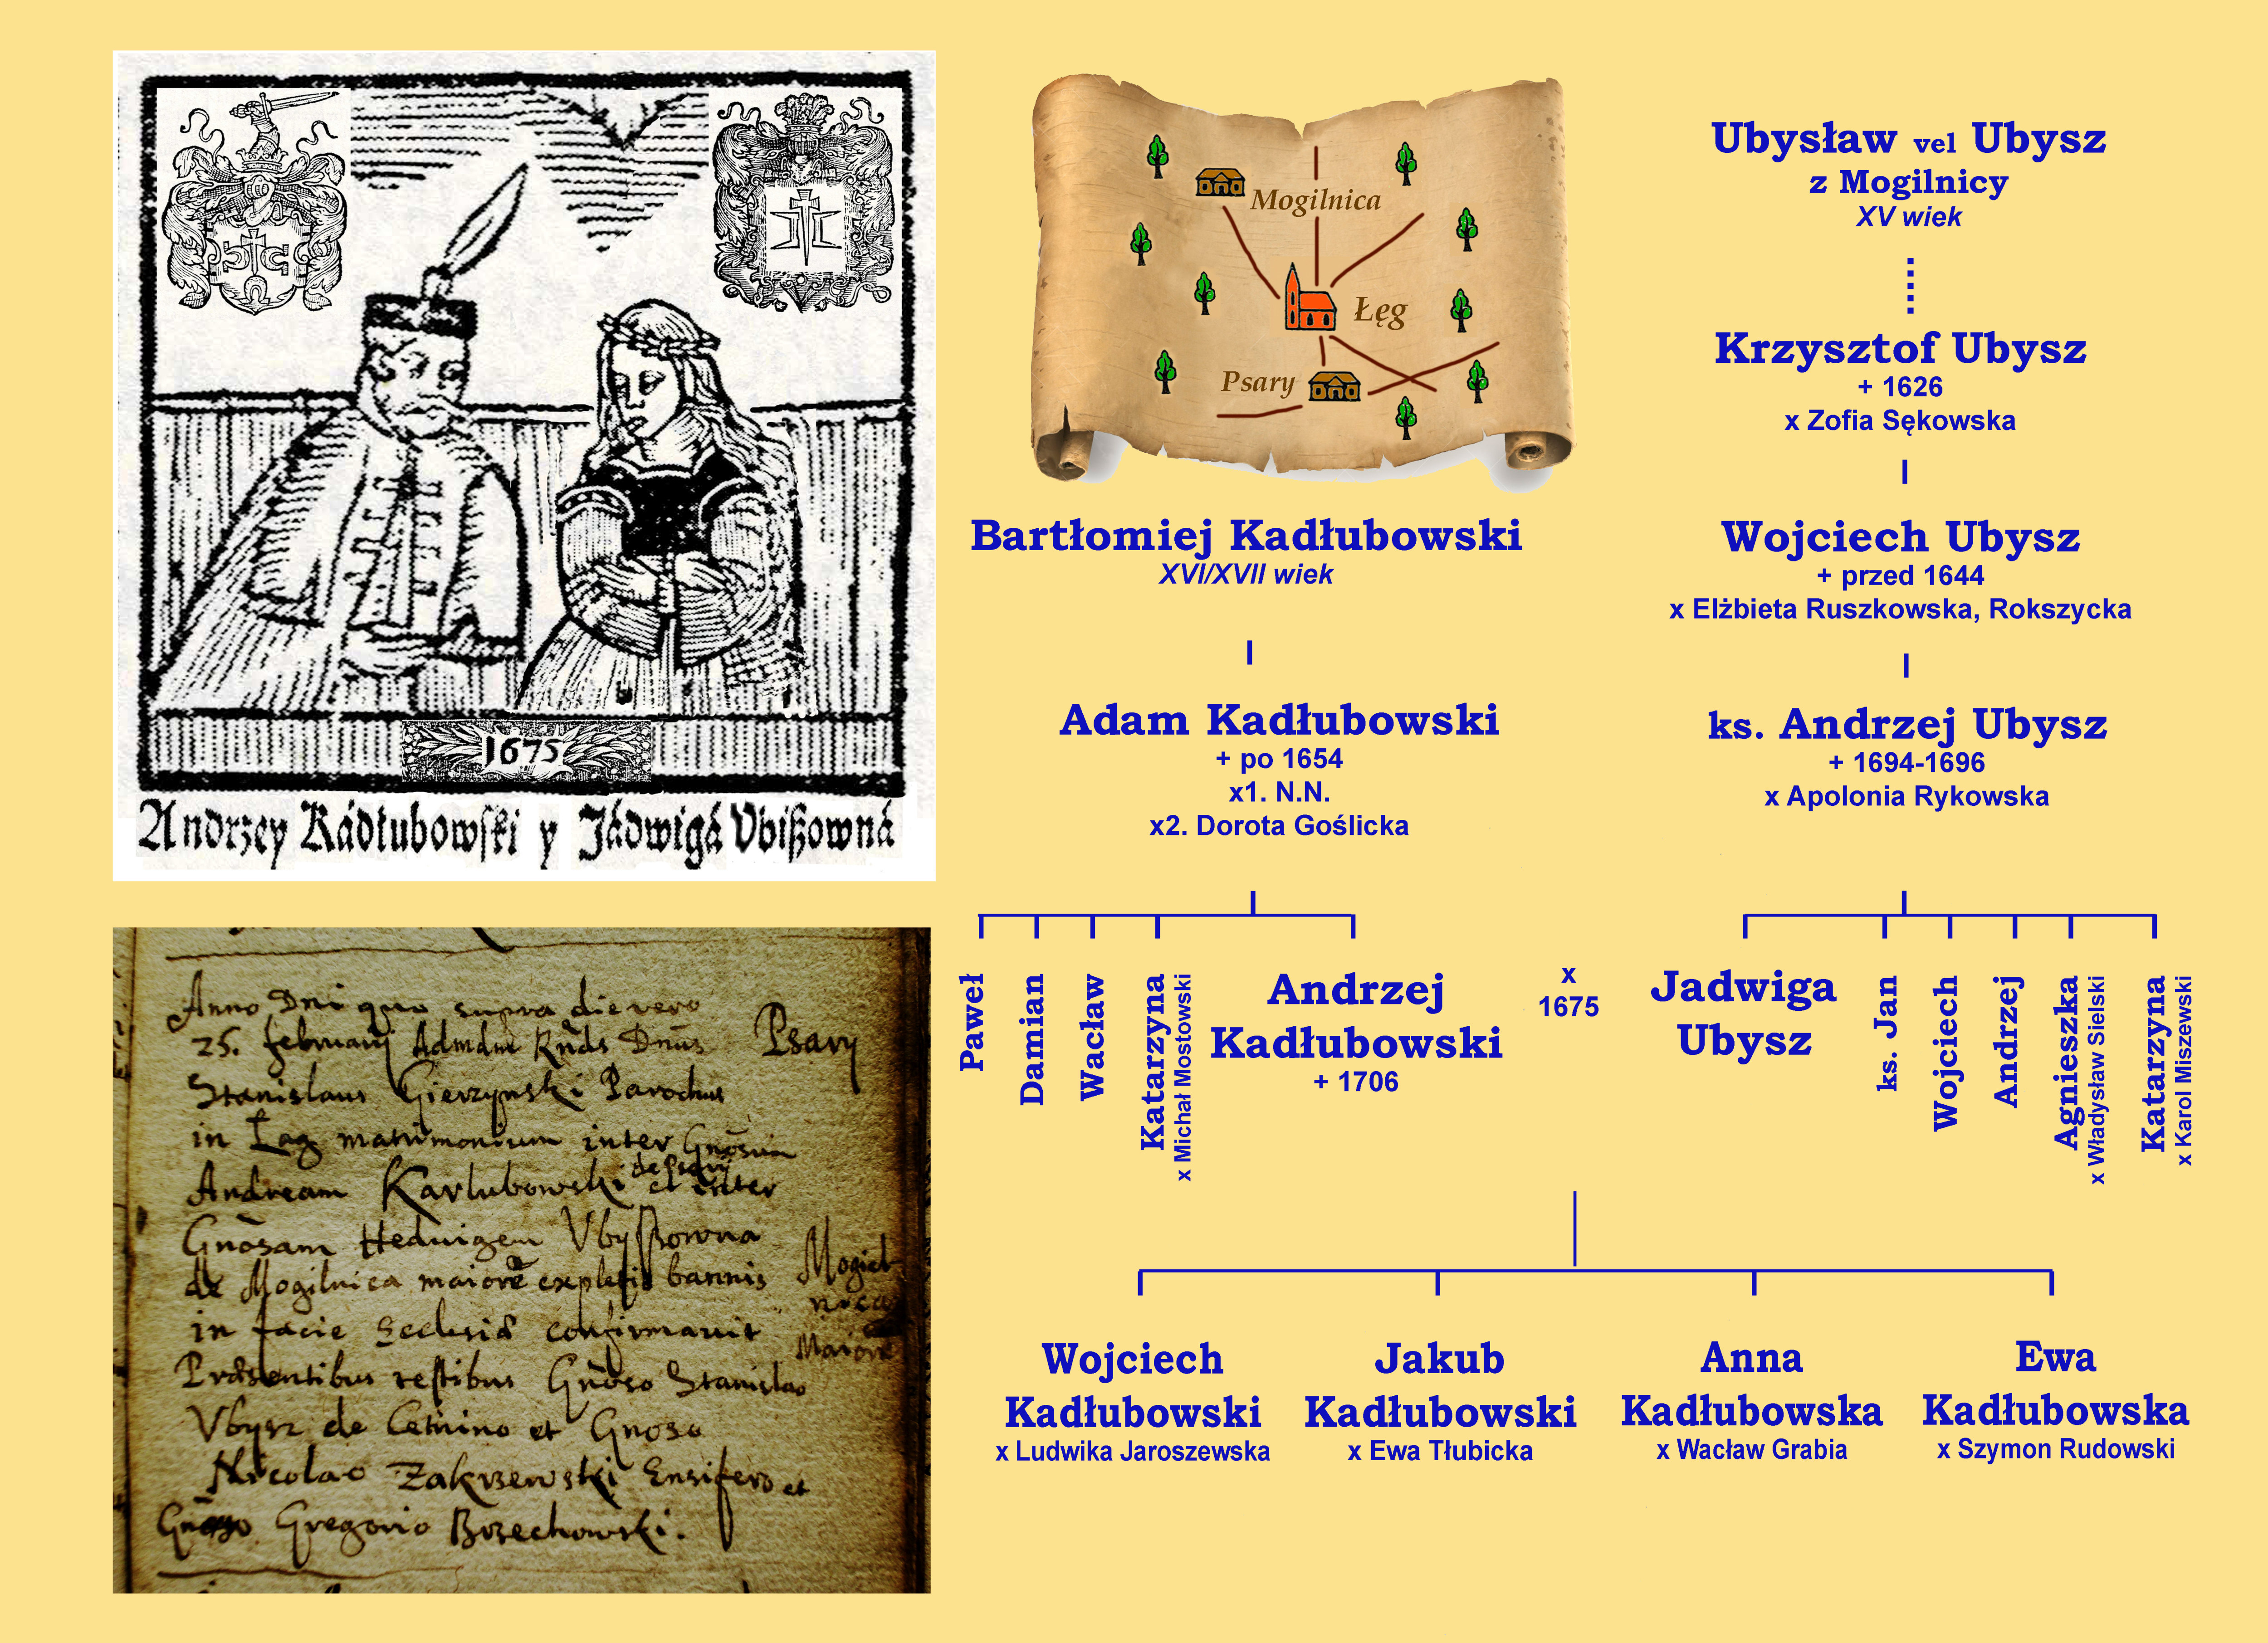 1675
Andrzey Kádłubowſki y Jádwigá Vbißowná
Anno Dni quo supra die vero
25. februarij Admdm Rnds Dnus
Psary
Stanislaus Gierzynski Parochus
in Łag matrimonium inter Gnosum
de Psary
Andream Karlubowski et inter
Gnosam Heduigem Vbyßowna
de Mogilnica maiore expletis bannis
Mogiel
nica
in facie Ecclesiæ confirmauit
Maiore
Præsentibus testibus Gnoso Stanislao
Vbysz de Cetnino et Gnoso
Nicolao Zakrzewski Ensifero et
Gnoso Gregorio Brzechowski.
Mogilnica
Łęg
Psary
Ubysław vel Ubysz
z Mogilnicy
XV wiek
Krzysztof Ubysz
+ 1626
x Zofia Sękowska
Bartłomiej Kadłubowski
XVI/XVII wiek
Wojciech Ubysz
+ przed 1644
x Elżbieta Ruszkowska, Rokszycka
Adam Kadłubowski
+ po 1654
x1. N.N.
x2. Dorota Goślicka
ks. Andrzej Ubysz
+ 1694-1696
x Apolonia Rykowska
Paweł
Damian
Wacław
Katarzyna
x Michał Mostowski
Andrzej
Kadłubowski
+ 1706
x
1675
Jadwiga
Ubysz
ks. Jan
Wojciech
Andrzej
Agnieszka
x Władysław Sielski
Katarzyna
x Karol Miszewski
Wojciech
Kadłubowski
x Ludwika Jaroszewska
Jakub
Kadłubowski
x Ewa Tłubicka
Anna
Kadłubowska
x Wacław Grabia
Ewa
Kadłubowska
x Szymon Rudowski